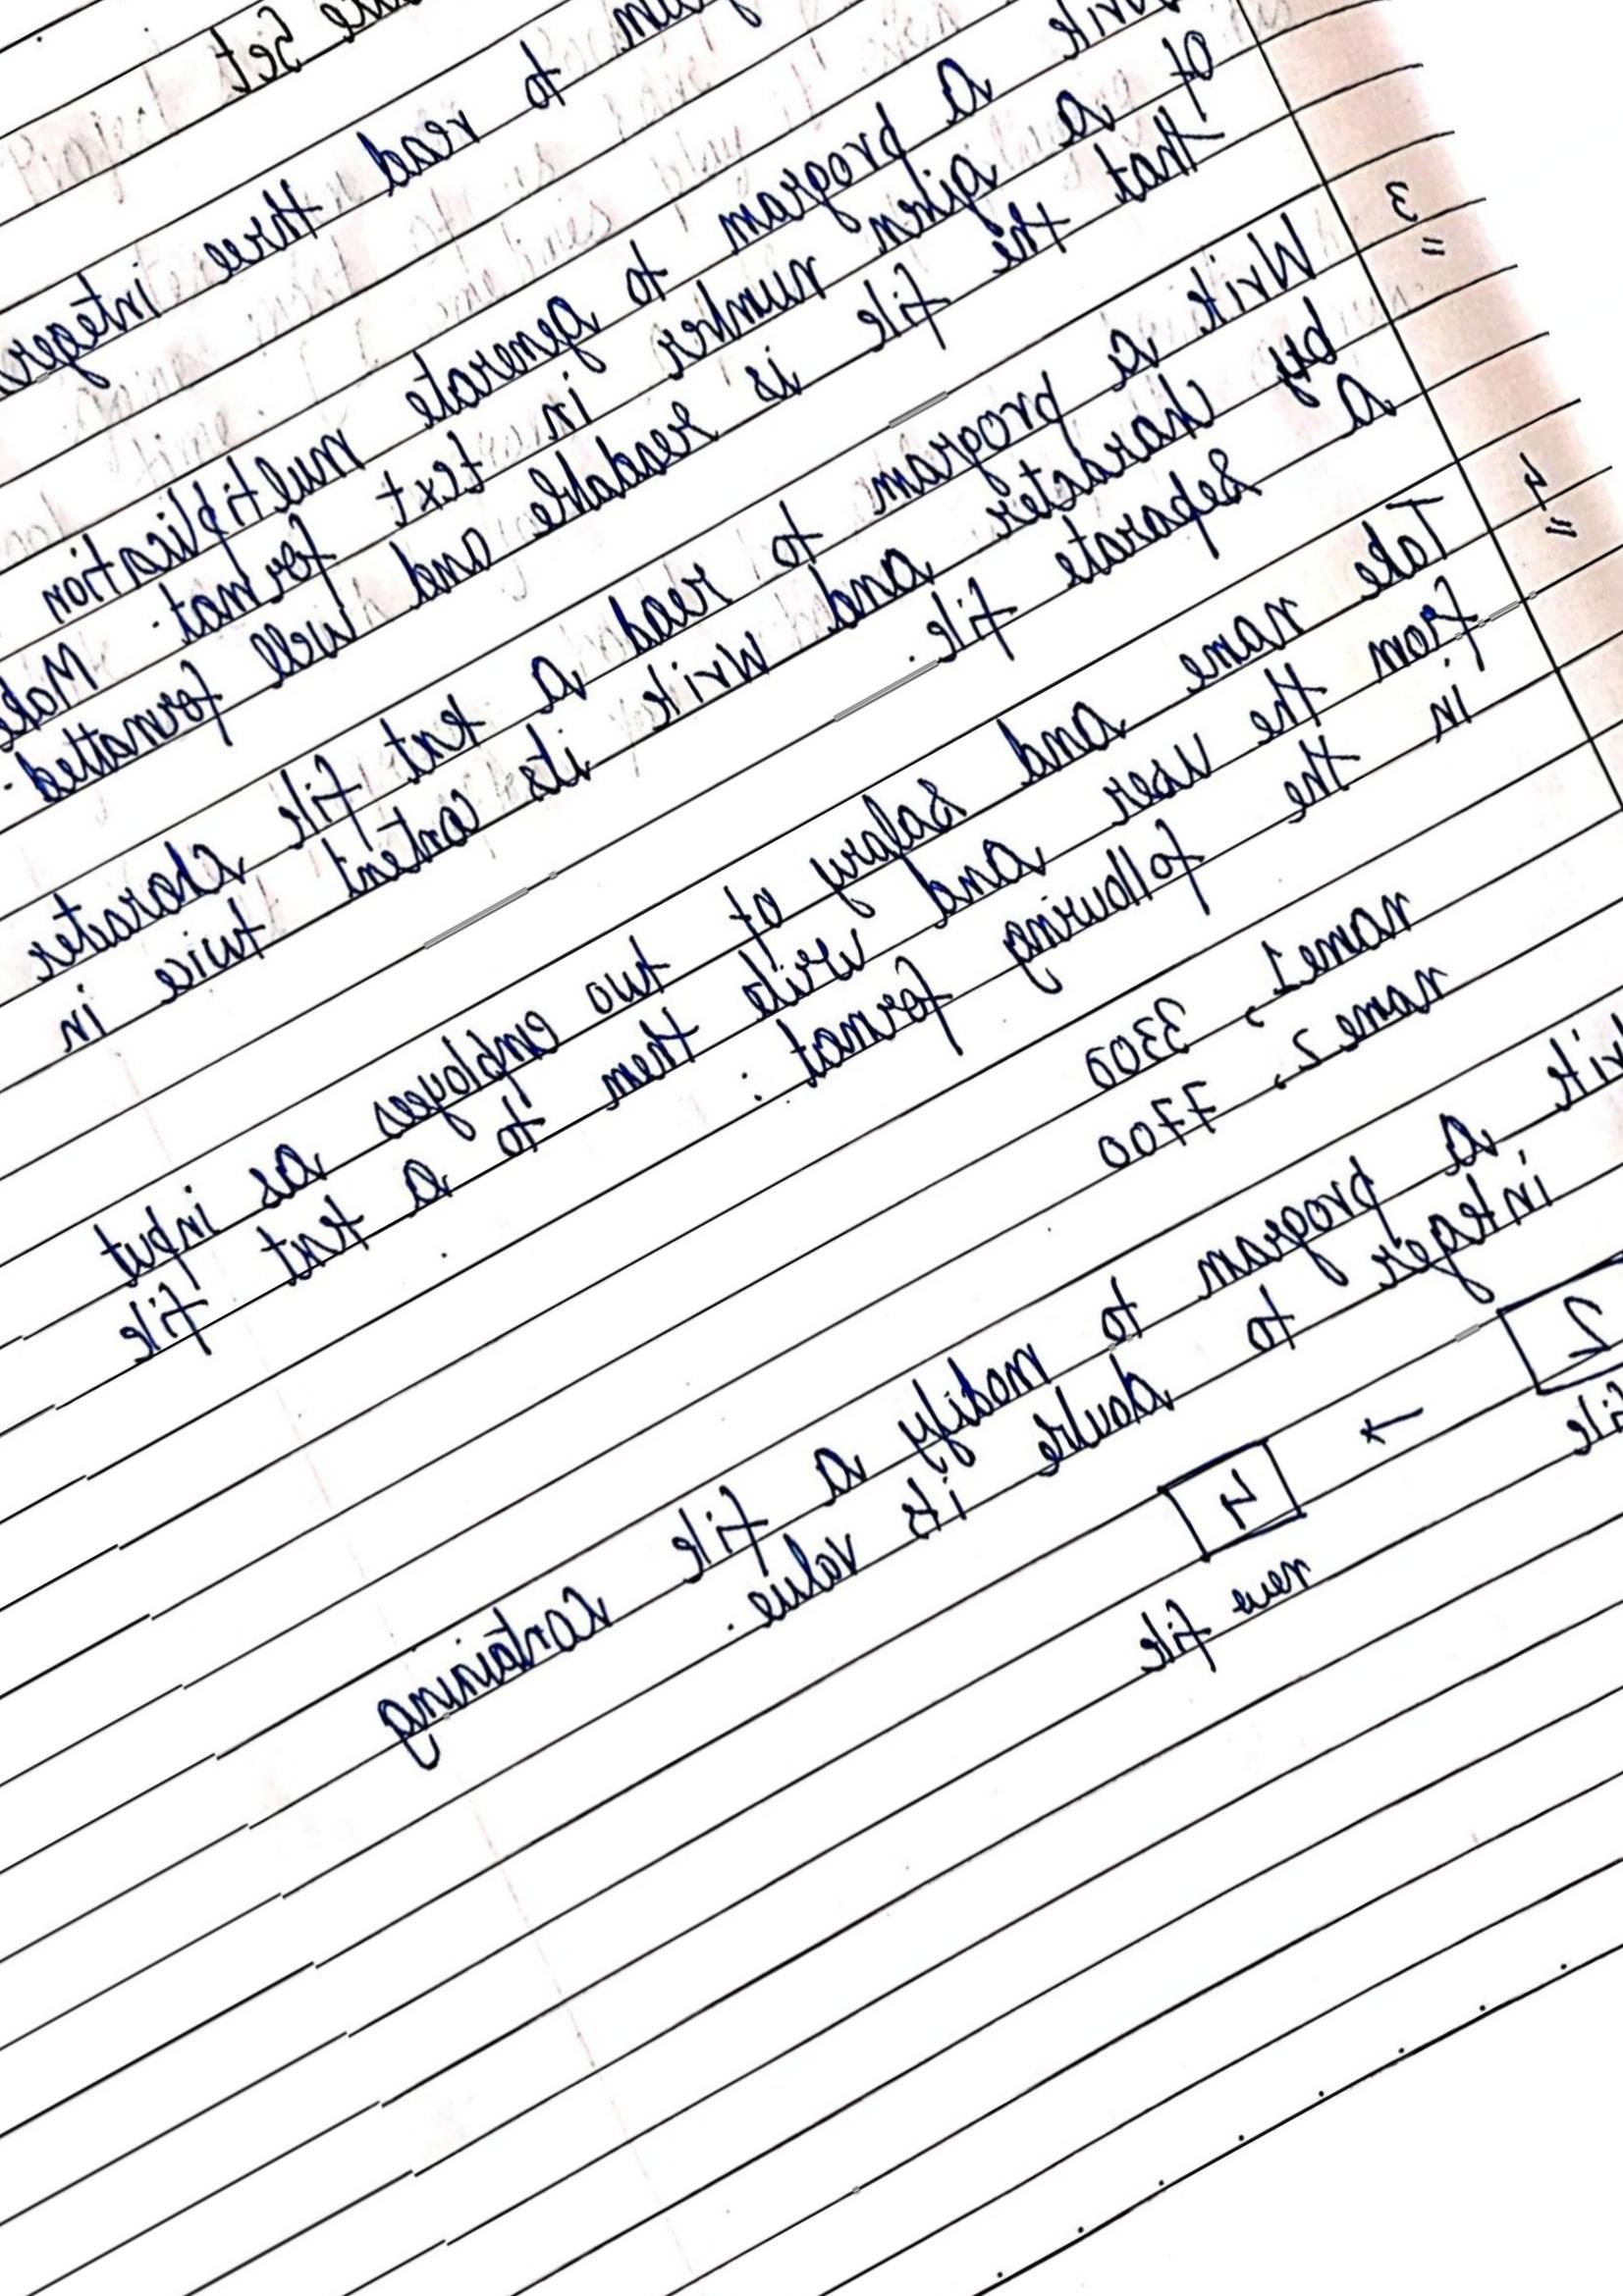 Set
to read three integers
a program to generate multiplication
of a given number in text format. Make
that the file is readable and well formatted.
3 Write a program to read a text file character
by character and write its content twice in
a separate file.
4 Take name and salary of two employees as input
from the user and write them to a text file
in the following format:
name1, 3300
name2, 7700
a program to modify a file containing
integer to double its value.
2 → 4
file new file